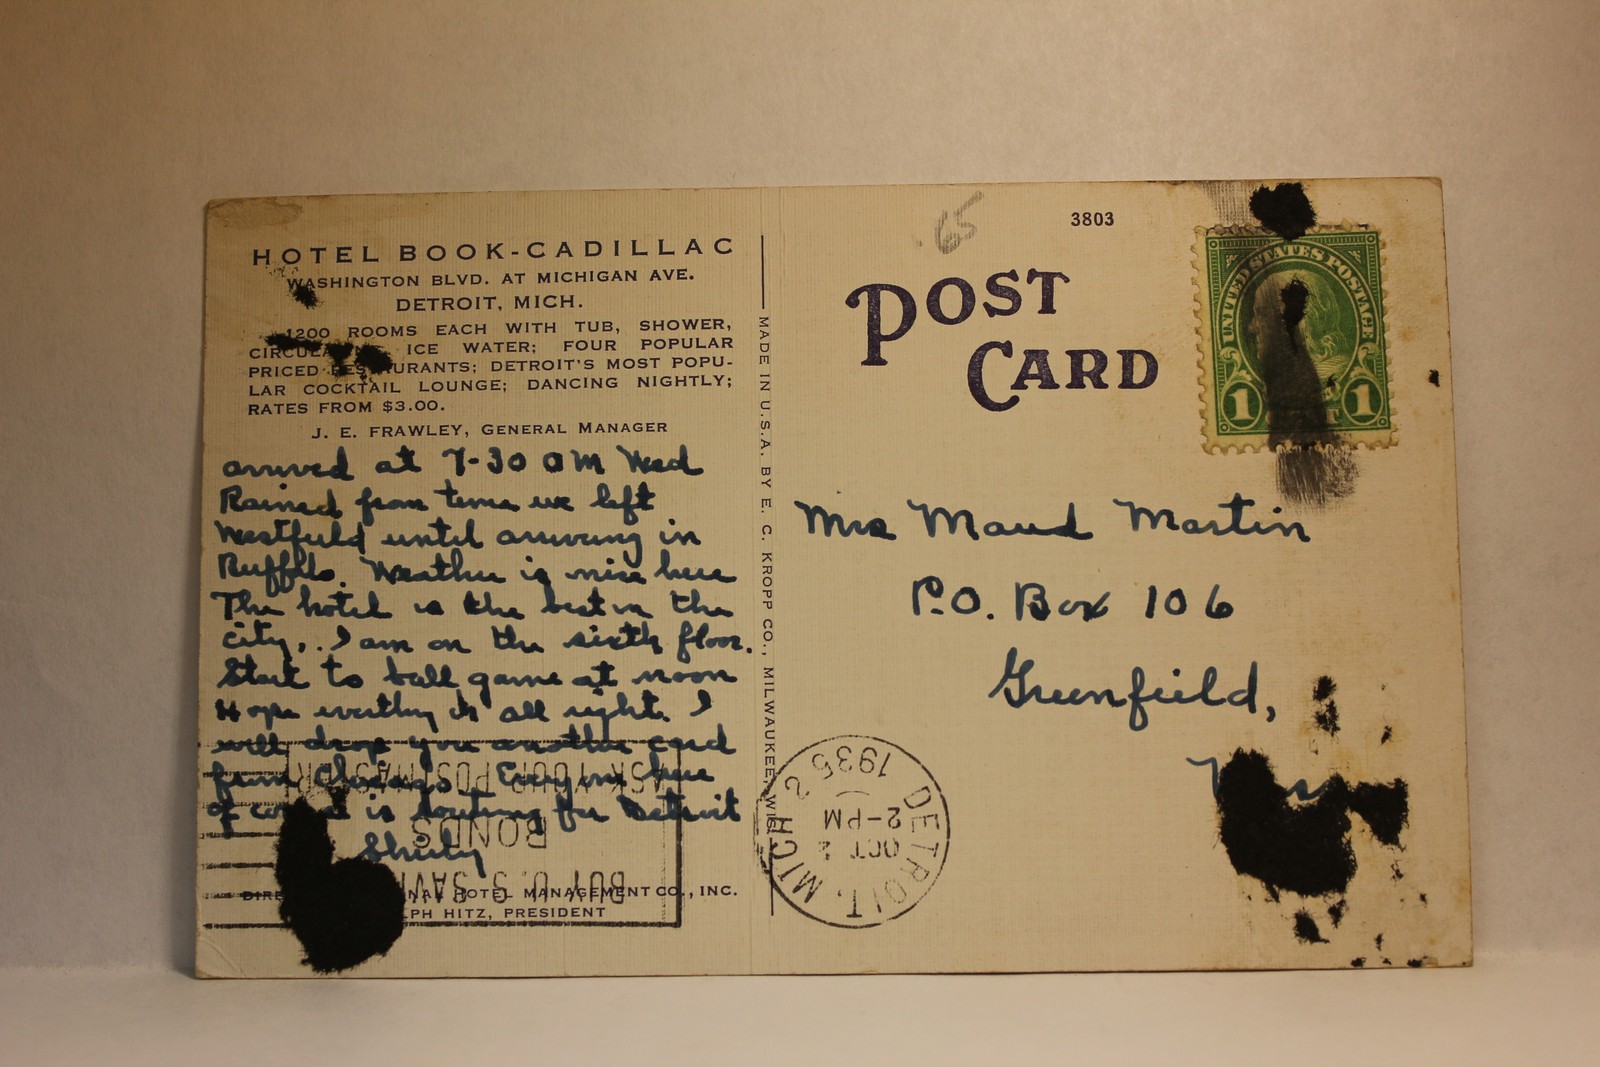 HOTEL BOOK-CADILLAC
WASHINGTON BLVD. AT MICHIGAN AVE.
DETROIT, MICH.
1200 ROOMS EACH WITH TUB, SHOWER,
ICE WATER; FOUR POPULAR
PRICED RESTAURANTS; DETROIT'S MOST POPU-
LAR COCKTAIL LOUNGE; DANCING NIGHTLY;
RATES FROM $3.00.
J. E. FRAWLEY, GENERAL MANAGER
arrived at 7-30 AM Wed
Rained from time we left
Westfield until arriving in
Buffalo. Weather is nice here
The hotel is the best in the
city,. I am on the sixth floor.
Start to ball game at noon
Hope everthing is all right. I
will drop you another card
from Chicago. Everyone here
of is for Detroit
HOTEL MANAGEMENT CO., INC.
HITZ, PRESIDENT
ASK YOUR POSTMASTER
BONDS
BUY U.S.
MADE IN U.S.A. BY E. C. KROPP CO., MILWAUKEE, WIS.
65
3803
POST
CARD
UNITED STATES POSTAGE
1 1
Mrs Maud Martin
P.O. Box 106
Greenfield,
DETROIT, MICH
OCT 2
2-PM
1935